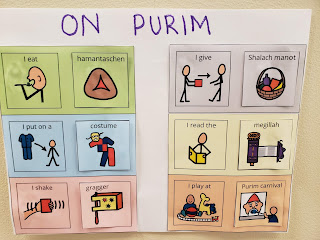 ON PURIM
I eat
hamantaschen
I put on a
costume
I shake
gragger
I give
Shalach manot
I read the
megillah
I play at
Purim carnival